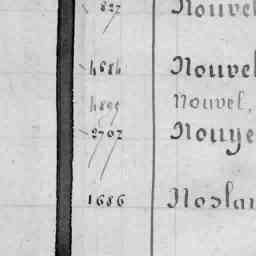 827 Nouvel
4684 Nouvel
4899 Nouvel,
2702 Nouye
1686 Noslau